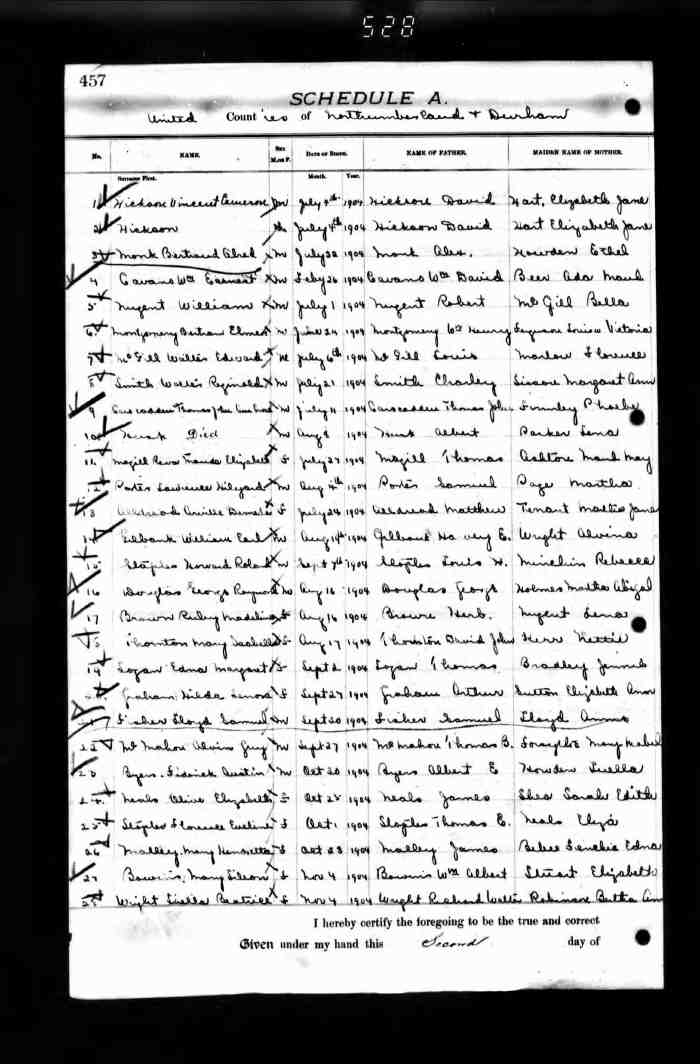 528
457
SCHEDULE A.
United Counties of Northumberland + Durham
No. NAME. Sex M. or F. DATE OF BIRTH. NAME OF FATHER. MAIDEN NAME OF MOTHER.
Surname First. Month. Year.
1 Hickson Vincent Cameron M July 4th 1904 Hickson David Hart, Elizabeth Jane
2 Hickson July 4th 1904 Hickson David Hart Elizabeth Jane
3 Monk Bertrand Alred M July 22 1904 Monk Alex. Howden Ethel
4 Cavans Wm Earnest M Feby 26 1904 Cavans Wm David Beer Ada Maud
5 Nugent William M July 1 1904 Nugent Robert McGill Bella
6 Montgomery Bertran Elmer M June 24 1904 Montgomery Wm Henry Ferguson Louisa Victoria
7 McGill Walter Edward M July 6th 1904 McGill Louis Marlow Florence
8 Smith Walter Reginald M July 21 1904 Smith Charley Margaret Ann
9 Thomas John M July 11 1904 Carscadden Thomas John Phoebe
10 Died M Aug 8 1904 Albert Parker Lena
11 Magill Reva Elizabeth F July 27 1904 Magill Thomas Ashton Maud May
12 Porter Lawrence Hilyard M Aug 4th 1904 Porter Samuel Page Martha
13 Orville F July 24 1904 Matthew Tenant Jane
14 Gilbank William Earl M Aug 14th 1904 Wright Alvina
15 Staples Howard Roland M Sept 7th 1904 Staples Louis W. Minchin Rebecca
16 Douglas George Raymond M Aug 16 1904 Douglas George Holmes Martha Abigal
17 Brown Ruby Madeline F Aug 16 1904 Brown Herb. Nugent Lena
18 Thornton May Isabella F Aug 17 1904 Thornton David John Kerr Nettie
19 Logan Edna Margaret F Sept 2 1904 Logan Thomas Bradley Jennie
20 Graham Hilda Lenora F Sept 27 1904 Graham Arthur Sutton Elizabeth Ann
21 Fisher Lloyd Samuel M Sept 20 1904 Fisher Samuel Lloyd Annie
22 McMahon Alvin Guy M Sept 27 1904 McMahon Thomas B. Forsythe Mary Mabel
23 Byers Austin M Oct 20 1904 Byers Albert E Howden Luella
24 Neals Olive Elizabeth F Oct 25 1904 Neals James Shea Sarah Edith
25 Staples Florence Eveline F Oct 1 1904 Staples Thomas E. Neals Eliza
26 Malley Mary Henrietta F Oct 23 1904 Malley James Edna
27 Mary F Nov 4 1904 Wm Albert Stuart Elizabeth
28 Wright Luella Beatrice F Nov 4 1904 Wright Richard Walter Robinson Bertha Ann
I hereby certify the foregoing to be the true and correct
Given under my hand this Second day of